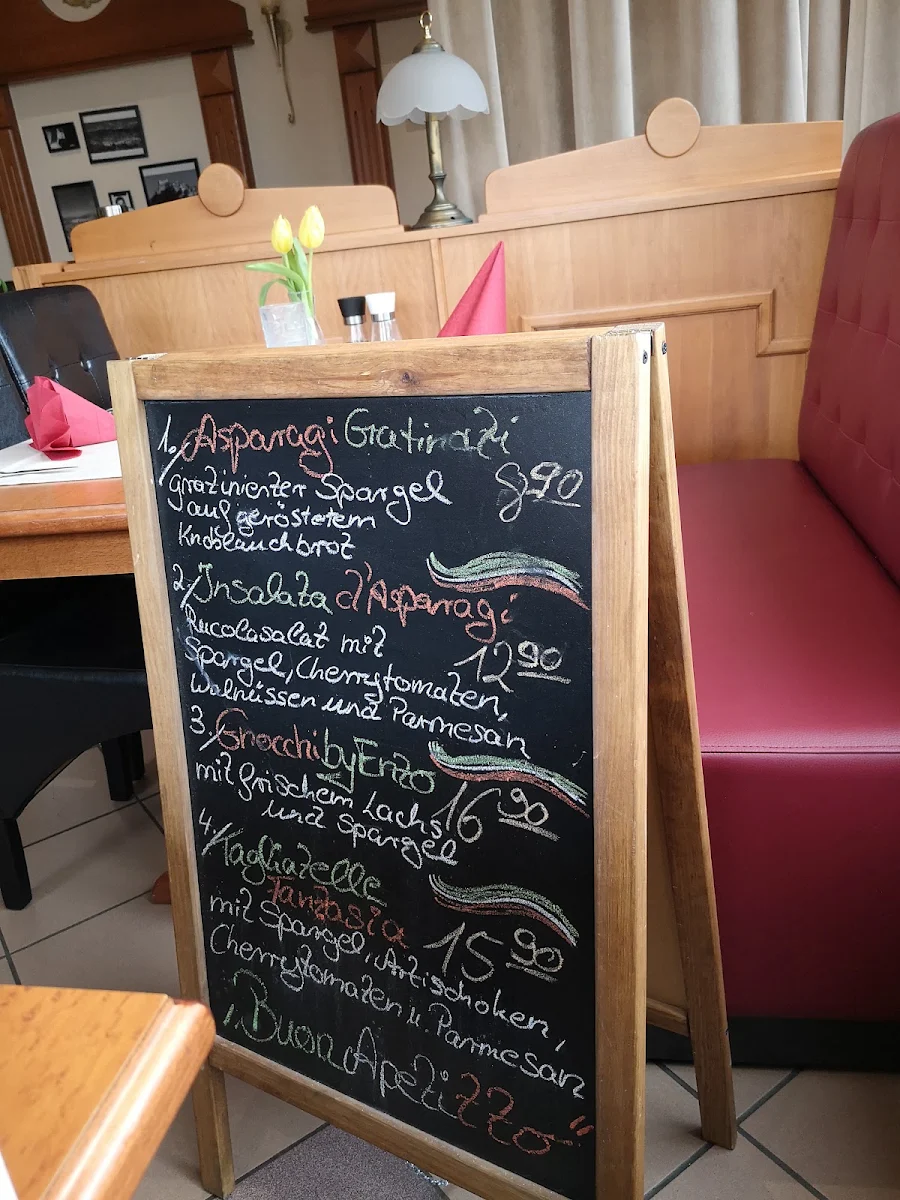 1. Asparagi Gratinati
gratinierter Spargel 8 90
auf geröstetem
Knoblauchbrot
2. Insalata d'Asparagi
Rucolasalat mit
Spargel, Cherrytomaten, 12 90
Walnüssen und Parmesan
3. Gnocchi by Enzo
mit frischem Lachs 16 90
und Spargel
4. Tagliatelle
Fantasia
mit Spargel, Artischoken, 15 90
Cherrytomaten u. Parmesan
„Buon Apetitto“